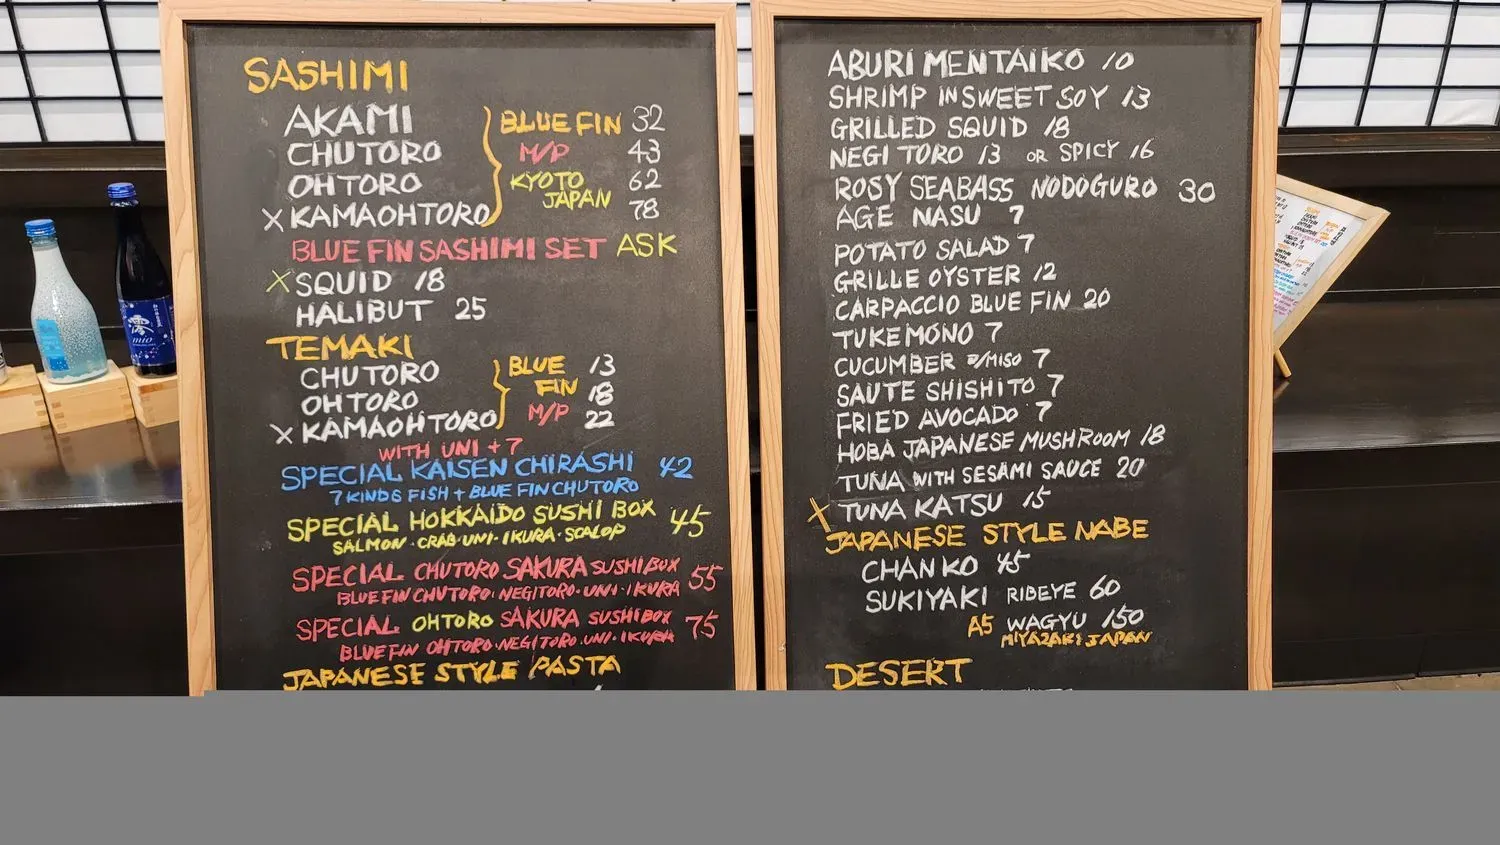 SASHIMI
AKAMI BLUE FIN 32
CHUTORO M/P 43
OHTORO KYOTO 62
JAPAN
X KAMAOHTORO 78
BLUE FIN SASHIMI SET ASK
X SQUID 18
HALIBUT 25
TEMAKI
CHUTORO BLUE 13
OHTORO FIN 18
X KAMAOHTORO M/P 22
WITH UNI +7
SPECIAL KAISEN CHIRASHI 42
7 KINDS FISH + BLUE FIN CHUTORO
SPECIAL HOKKAIDO SUSHI BOX 45
SALMON · CRAB · UNI · IKURA · SCALOP
SPECIAL CHUTORO SAKURA SUSHI BOX 55
BLUE FIN CHUTORO · NEGITORO · UNI · IKURA
SPECIAL OHTORO SAKURA SUSHI BOX 75
BLUE FIN OHTORO · NEGITORO · UNI · IKURA
JAPANESE STYLE PASTA
ABURI MENTAIKO 10
SHRIMP IN SWEET SOY 13
GRILLED SQUID 18
NEGI TORO 13 OR SPICY 16
ROSY SEABASS NODOGURO 30
AGE NASU 7
POTATO SALAD 7
GRILLE OYSTER 12
CARPACCIO BLUE FIN 20
TUKEMONO 7
CUCUMBER W/MISO 7
SAUTE SHISHITO 7
FRIED AVOCADO 7
HOBA JAPANESE MUSHROOM 18
TUNA WITH SESAMI SAUCE 20
X TUNA KATSU 15
JAPANESE STYLE NABE
CHANKO 45
SUKIYAKI RIBEYE 60
A5 WAGYU 150
MIYAZAKI JAPAN
DESERT
mio